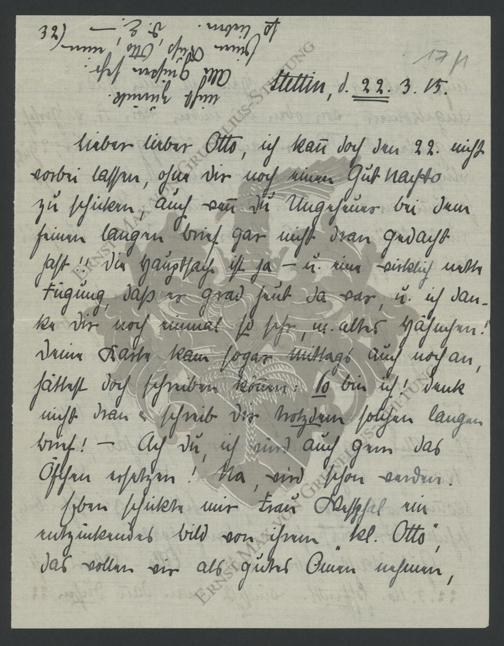 32)
17/1
Stettin, d. 22. 3. 15.
Lieber lieber Otto, ich kann doch den 22. nicht
vorbei lassen, ohne dir noch einen Gut Nacht
zu schicken, auch wenn du Ungeheuer bei dem
feinen langen Brief gar nicht dran gedacht
hast!! Die Hauptsach ist ja – u. eine wirklich nette
Fügung, daß er grad heut da war, u. ich dan-
ke dir noch einmal so sehr, m. altes
Deine Karte kam sogar Mittags auch noch an,
hättest doch schreiben können: So bin ich! denk
nicht dran u. schreib dir trotzdem solchen langen
Brief! – Ach du, ich will auch gern das
Öfchen ersetzen! Na, wird schon werden.
Eben schickte mir Frau Westphal ein
entzückendes Bild von ihrem "kl. Otto",
das wollen wir als gutes Omen nehmen,
nicht
Otto, mein
ERNST MAX VON GRUNELIUS-STIFTUNG
ERNST MAX VON GRUNELIUS-STIFTUNG